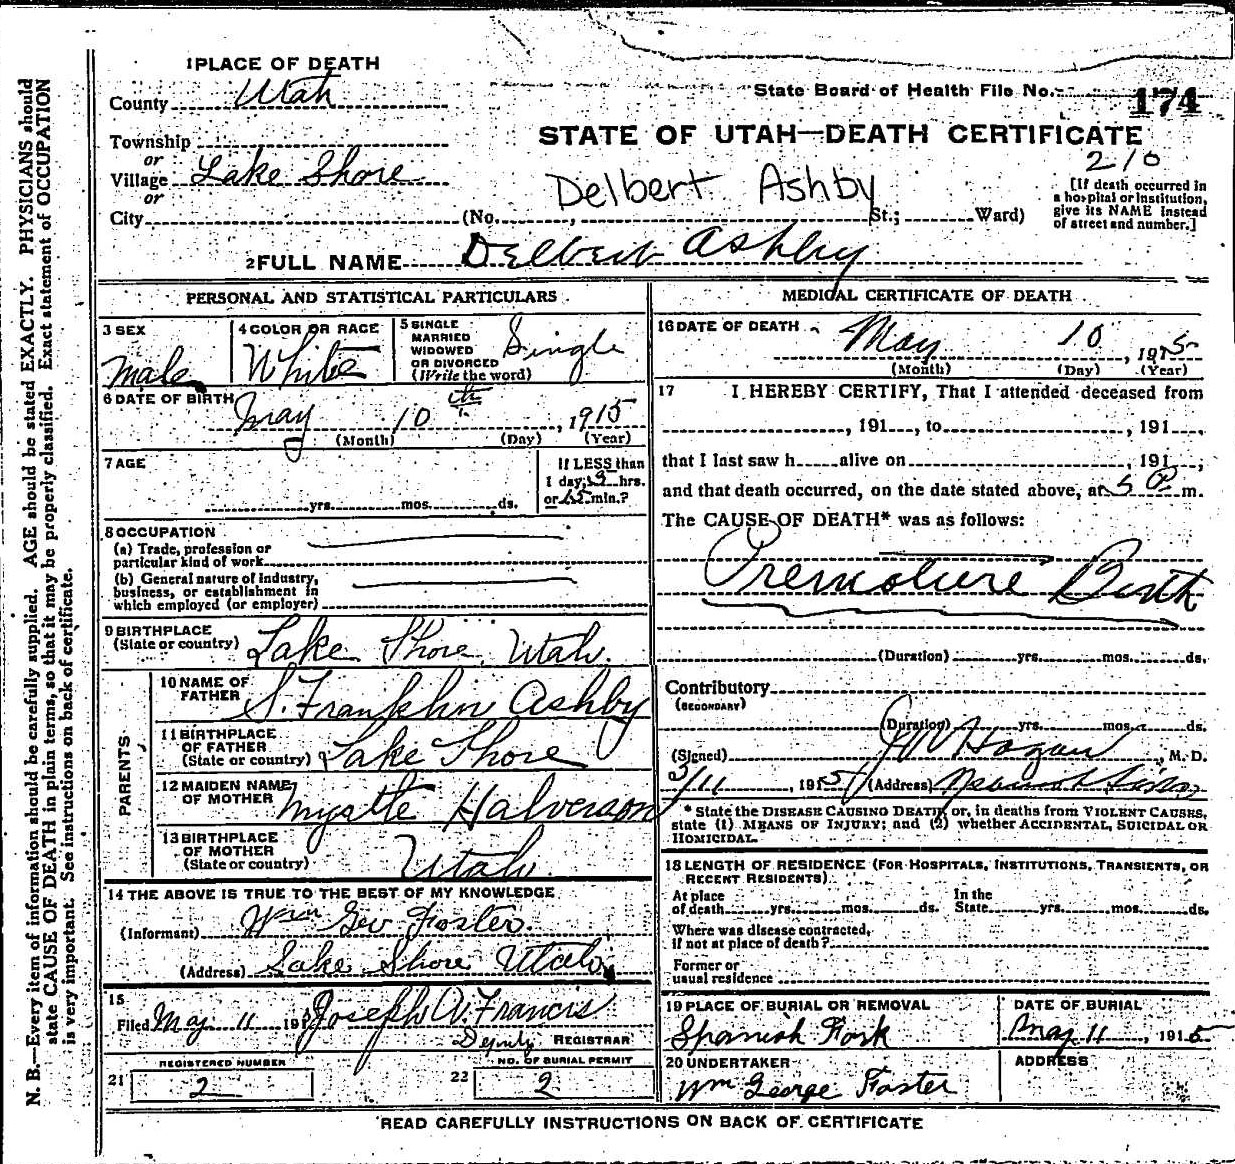 1 PLACE OF DEATH
County Utah
Township
or
Village Lake Shore
or
City (No. , St.; Ward)
State Board of Health File No. 174
STATE OF UTAH—DEATH CERTIFICATE
210
Delbert Ashby
[If death occurred in
a hospital or institution,
give its NAME instead
of street and number.]
2 FULL NAME Delbert Ashby
PERSONAL AND STATISTICAL PARTICULARS
3 SEX
Male
4 COLOR OR RACE
White
5 SINGLE
MARRIED
WIDOWED
OR DIVORCED
(Write the word)
Single
6 DATE OF BIRTH
May 10th, 1915
(Month) (Day) (Year)
7 AGE
yrs. mos. ds.
If LESS than
1 day, hrs.
or min.?
8 OCCUPATION
(a) Trade, profession or
particular kind of work
(b) General nature of industry,
business, or establishment in
which employed (or employer)
9 BIRTHPLACE
(State or country) Lake Shore, Utah.
PARENTS
10 NAME OF
FATHER S. Franklin Ashby
11 BIRTHPLACE
OF FATHER
(State or country) Lake Shore
12 MAIDEN NAME
OF MOTHER Myrtle Halverson
13 BIRTHPLACE
OF MOTHER
(State or country) Utah.
14 THE ABOVE IS TRUE TO THE BEST OF MY KNOWLEDGE
(Informant) Wm Geo Foster.
(Address) Lake Shore Utah
15
Filed May 11 191 Joseph A. Francis
Deputy REGISTRAR
REGISTERED NUMBER
21 2
NO. OF BURIAL PERMIT
22 2
MEDICAL CERTIFICATE OF DEATH
16 DATE OF DEATH
May 10, 1915
(Month) (Day) (Year)
17 I HEREBY CERTIFY, That I attended deceased from
, 191 , to , 191 ,
that I last saw h alive on , 191 ;
and that death occurred, on the date stated above, at 5 P. m.
The CAUSE OF DEATH* was as follows:
Premature Birth
(Duration) yrs. mos. ds.
Contributory
(SECONDARY)
(Duration) yrs. mos. ds.
(Signed) Hagan, M. D.
5/11, 1915 (Address)
* State the DISEASE CAUSING DEATH, or, in deaths from VIOLENT CAUSES,
state (1) MEANS OF INJURY; and (2) whether ACCIDENTAL, SUICIDAL OR
HOMICIDAL.
18 LENGTH OF RESIDENCE (FOR HOSPITALS, INSTITUTIONS, TRANSIENTS, OR
RECENT RESIDENTS)
At place
of death yrs. mos. ds.
In the
State yrs. mos. ds.
Where was disease contracted,
if not at place of death?
Former or
usual residence
19 PLACE OF BURIAL OR REMOVAL
Spanish Fork
DATE OF BURIAL
May 11, 1915
20 UNDERTAKER
Wm George Foster
ADDRESS
READ CAREFULLY INSTRUCTIONS ON BACK OF CERTIFICATE
N. B.—Every item of information should be carefully supplied. AGE should be stated EXACTLY. PHYSICIANS should
state CAUSE OF DEATH in plain terms, so that it may be properly classified. Exact statement of OCCUPATION
is very important. See instructions on back of certificate.